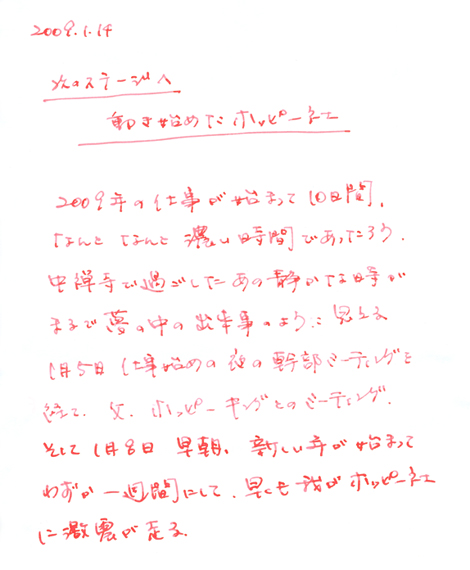 2009.1.14
次のステージへ
動き始めたホッピーネエ
2009年の仕事が始まって10日間、
なんと なんと 濃い時間であったろう。
中禅寺で過ごしたあの静かな日々が
まるで夢の中の出来事のように思える
1月5日 仕事始めの夜の幹部ミーティングを
経て、父、ホッピーキングとのミーティング。
そして1月8日 早朝、新しい年が始まって
わずか一週間にして、早くも我がホッピーネエ
に激震が走る。